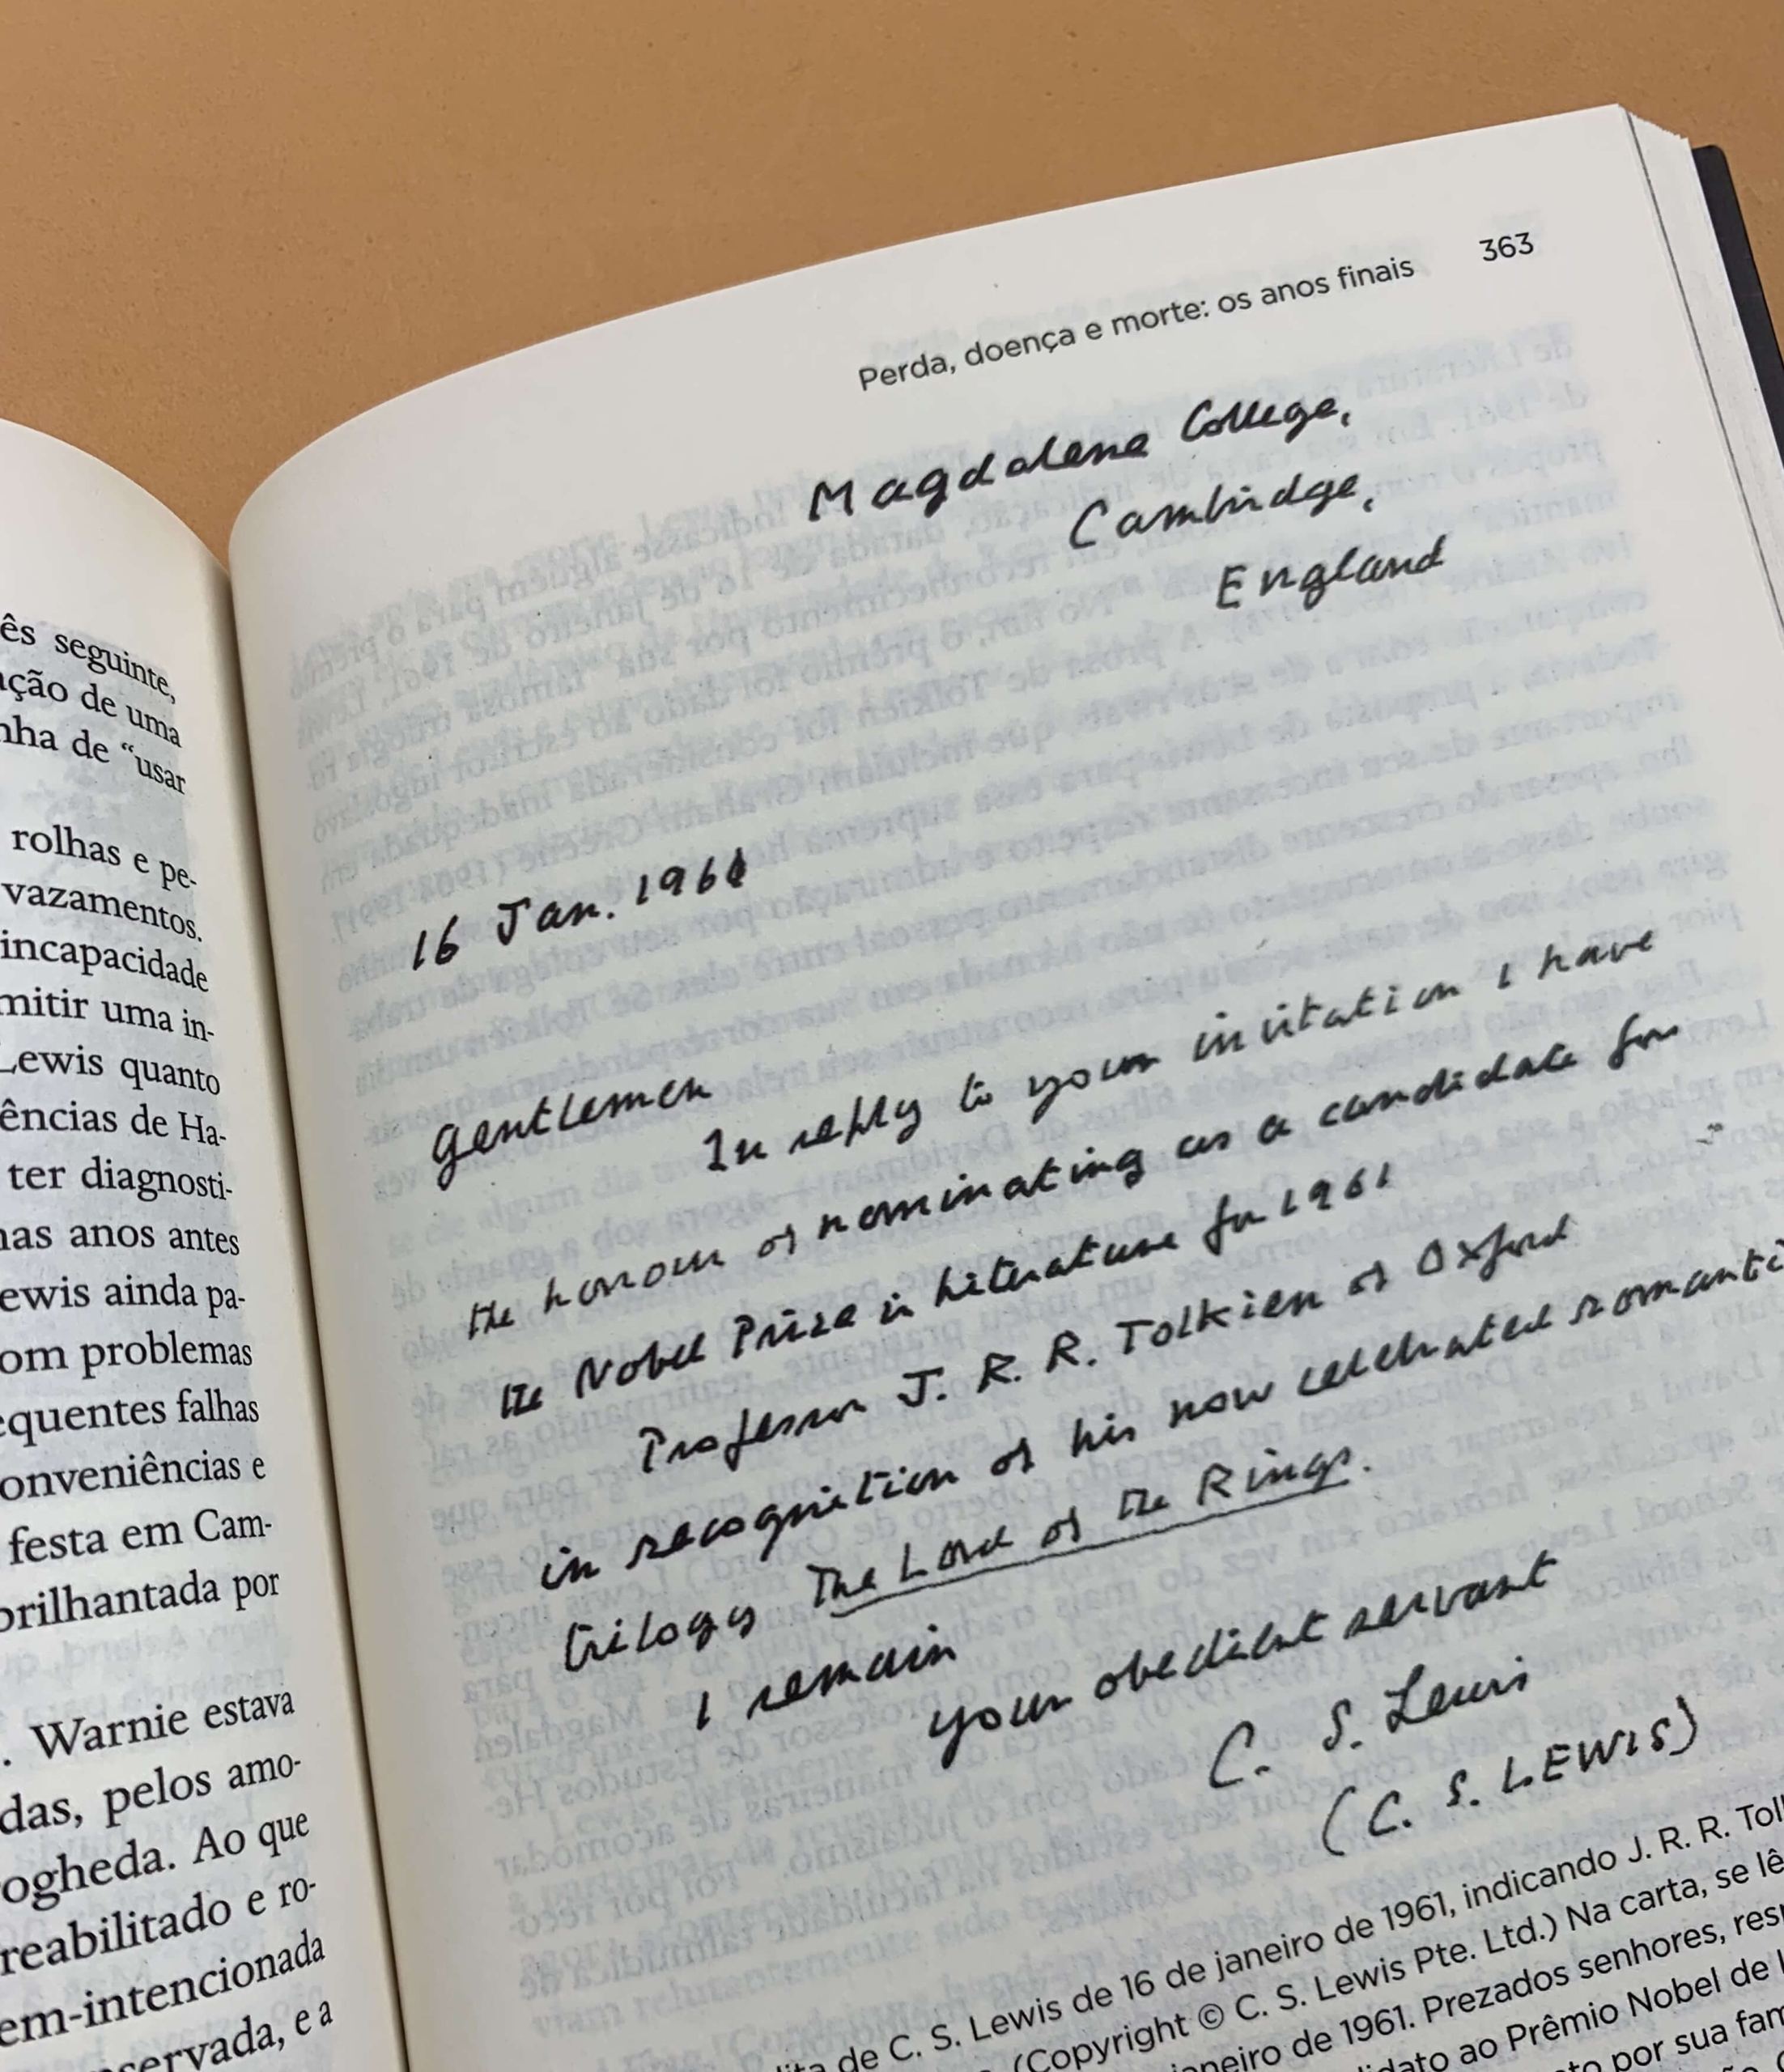 ês seguinte,
ação de uma
nha de “usar
rolhas e pe-
vazamentos.
incapacidade
mitir uma in-
Lewis quanto
ências de Ha-
ter diagnosti-
nas anos antes
ewis ainda pa-
om problemas
equentes falhas
onveniências e
festa em Cam-
brilhantada por
. Warnie estava
das, pelos amo-
ogheda. Ao que
reabilitado e ro-
em-intencionada
servada, e a
Perda, doença e morte: os anos finais 363
Magdalene College,
Cambridge,
England
16 Jan. 1961
Gentlemen
In reply to your invitation I have
the honour of nominating as a candidate for
the Nobel Prize in Literature for 1961
Professor J. R. R. Tolkien of Oxford
in recognition of his now celebrated romanti
trilogy The Lord of the Rings.
I remain
your obedient servant
C. S. Lewis
(C. S. LEWIS)
ita de C. S. Lewis de 16 de janeiro de 1961, indicando J. R. R. Tol
(Copyright © C. S. Lewis Pte. Ltd.) Na carta, se lê
janeiro de 1961. Prezados senhores, res
didato ao Prêmio Nobel de
to por sua fam